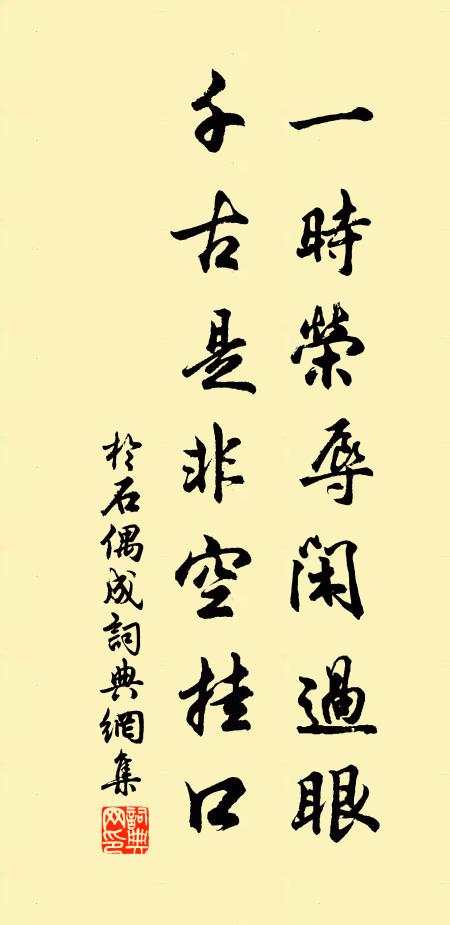 一時榮辱閑過眼
千古是非空挂口
於石偶成詞典網集
詞典網印